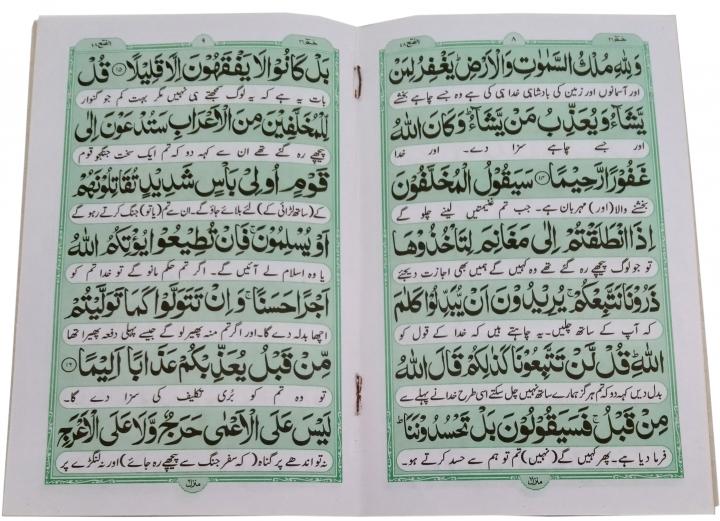 حٰمٓ ٢٦
٨
الفتح ٤٨
وَلِلّٰهِ مُلْكُ السَّمٰوٰتِ وَالْاَرْضِ ؕ يَغْفِرُ لِمَنْ
اور آسمانوں اور زمین کی بادشاہی خدا ہی کی ہے وہ جسے چاہے بخشے
يَّشَآءُ وَيُعَذِّبُ مَنْ يَّشَآءُ ؕ وَكَانَ اللّٰهُ
اور جسے چاہے سزا دے۔ اور خدا
غَفُوْرًا رَّحِيْمًا ﴿١٤﴾ سَيَقُوْلُ الْمُخَلَّفُوْنَ
بخشنے والا (اور) مہربان ہے۔ جب تم غنیمتیں لینے چلو گے
اِذَا انْطَلَقْتُمْ اِلٰى مَغَانِمَ لِتَاْخُذُوْهَا
تو جو لوگ پیچھے رہ گئے تھے وہ کہیں گے ہمیں بھی اجازت دیجئے
ذَرُوْنَا نَتَّبِعْكُمْ ۚ يُرِيْدُوْنَ اَنْ يُّبَدِّلُوْا كَلٰمَ
کہ آپ کے ساتھ چلیں۔ یہ چاہتے ہیں کہ خدا کے قول کو
اللّٰهِ ؕ قُلْ لَّنْ تَتَّبِعُوْنَا كَذٰلِكُمْ قَالَ اللّٰهُ
بدل دیں کہہ دو کہ تم ہرگز ہمارے ساتھ نہیں چل سکتے اسی طرح خدا نے پہلے سے
مِنْ قَبْلُ ۚ فَسَيَقُوْلُوْنَ بَلْ تَحْسُدُوْنَنَا ؕ
فرما دیا ہے۔ پھر کہیں گے (نہیں) تم تو ہم سے حسد کرتے ہو۔
منزل
حٰمٓ ٢٦
٩
الفتح ٤٨
بَلْ كَانُوْا لَا يَفْقَهُوْنَ اِلَّا قَلِيْلًا ﴿١٥﴾ قُلْ
بات یہ ہے کہ یہ لوگ سمجھتے ہی نہیں مگر بہت کم جو گنوار
لِّلْمُخَلَّفِيْنَ مِنَ الْاَعْرَابِ سَتُدْعَوْنَ اِلٰى
پیچھے رہ گئے تھے ان سے کہہ دو کہ تم ایک سخت جنگجو قوم
قَوْمٍ اُولِيْ بَاْسٍ شَدِيْدٍ تُقَاتِلُوْنَهُمْ
کے (ساتھ لڑائی کے) لئے بلائے جاؤ گے۔ ان سے تم (یا تو) جنگ کرتے رہو گے
اَوْ يُسْلِمُوْنَ ۚ فَاِنْ تُطِيْعُوْا يُؤْتِكُمُ اللّٰهُ
یا وہ اسلام لے آئیں گے۔ اگر تم حکم مانو گے تو خدا تم کو
اَجْرًا حَسَنًا ۚ وَاِنْ تَتَوَلَّوْا كَمَا تَوَلَّيْتُمْ
اچھا بدلہ دے گا۔ اور اگر تم منہ پھیر لو گے جیسے پہلی دفعہ پھیرا تھا
مِّنْ قَبْلُ يُعَذِّبْكُمْ عَذَابًا اَلِيْمًا ﴿١٦﴾
تو وہ تم کو بُری تکلیف کی سزا دے گا۔
لَيْسَ عَلَى الْاَعْمٰى حَرَجٌ وَّلَا عَلَى الْاَعْرَجِ
نہ تو اندھے پر گناہ (کہ سفر جنگ سے پیچھے رہ جائے) اور نہ لنگڑے پر
منزل